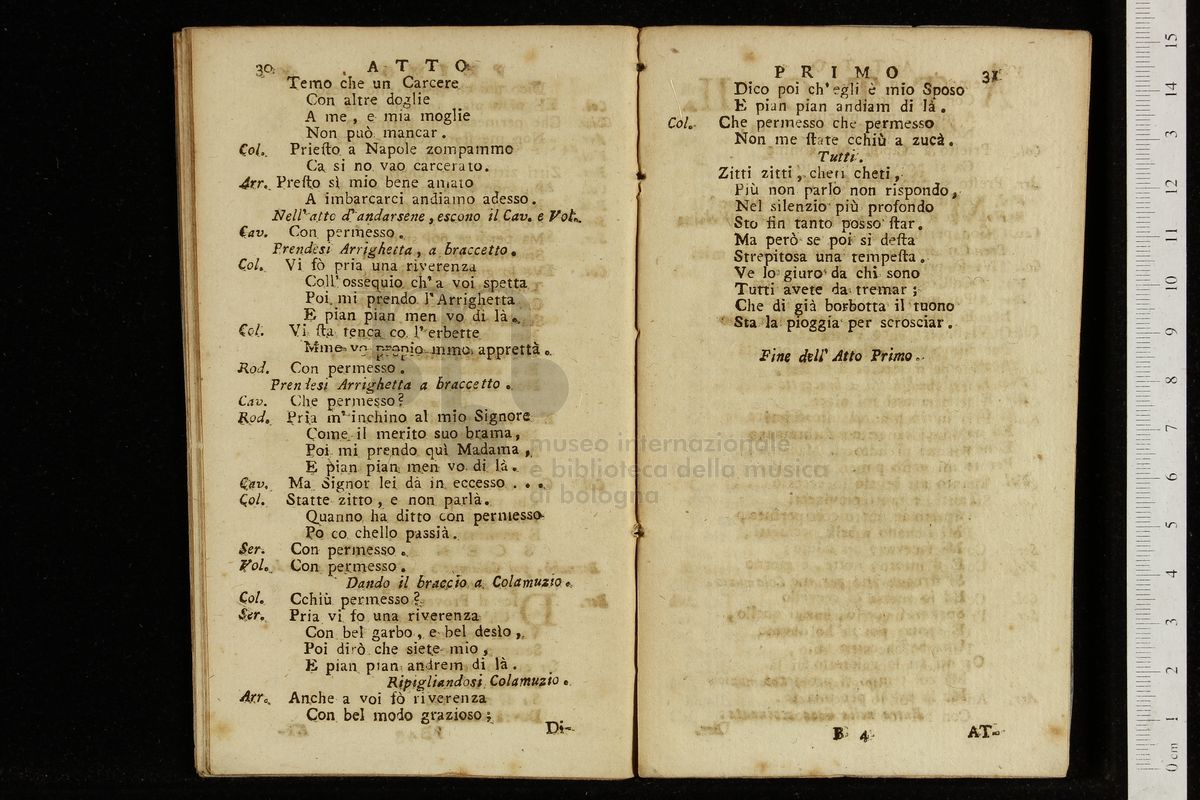 30 ATTO
Temo che un Carcere
Con altre doglie
A me, e mia moglie
Non può mancar.
Col. Priesto a Napole zompammo
Ca si no vao carcerato.
Arr. Presto sì mio bene amato
A imbarcarci andiamo adesso.
Nell'atto d'andarsene, escono il Cav. e Vol.
Cav. Con permesso.
Prendesi Arrighetta, a braccetto.
Col. Vi fò pria una riverenza
Coll'ossequio ch'a voi spetta
Poi mi prendo l'Arrighetta
E pian pian men vo di là.
Col. Vi sta tenca co l'erbette
Mme vo propio mmo apprettà.
Rod. Con permesso.
Prendesi Arrighetta a braccetto.
Cav. Che permesso?
Rod. Pria m'inchino al mio Signore
Come il merito suo brama,
Poi mi prendo quì Madama,
E pian pian men vo di là.
Cav. Ma Signor lei dà in eccesso . . .
Col. Statte zitto, e non parlà.
Quanno ha ditto con permesso
Po co chello passià.
Ser. Con permesso.
Vol. Con permesso.
Dando il braccio a Colamuzio.
Col. Cchiù permesso?
Ser. Pria vi fo una riverenza
Con bel garbo, e bel desìo,
Poi dirò che siete mio,
E pian pian andrem di là.
Ripigliandosi Colamuzio.
Arr. Anche a voi fò riverenza
Con bel modo grazioso;
Di-
PRIMO 31
Dico poi ch'egli è mio Sposo
E pian pian andiam di là.
Col. Che permesso che permesso
Non me state cchiù a zucà.
Tutti.
Zitti zitti, cheti cheti,
Più non parlo non rispondo,
Nel silenzio più profondo
Sto fin tanto posso star.
Ma però se poi si desta
Strepitosa una tempesta.
Ve lo giuro da chi sono
Tutti avete da tremar;
Che di già borbotta il tuono
Sta la pioggia per scrosciar.
Fine dell'Atto Primo.
B 4 AT-
museo internazionale
e biblioteca della musica
di bologna
0 cm 1 2 3 4 5 6 7 8 9 10 11 12 13 14 15